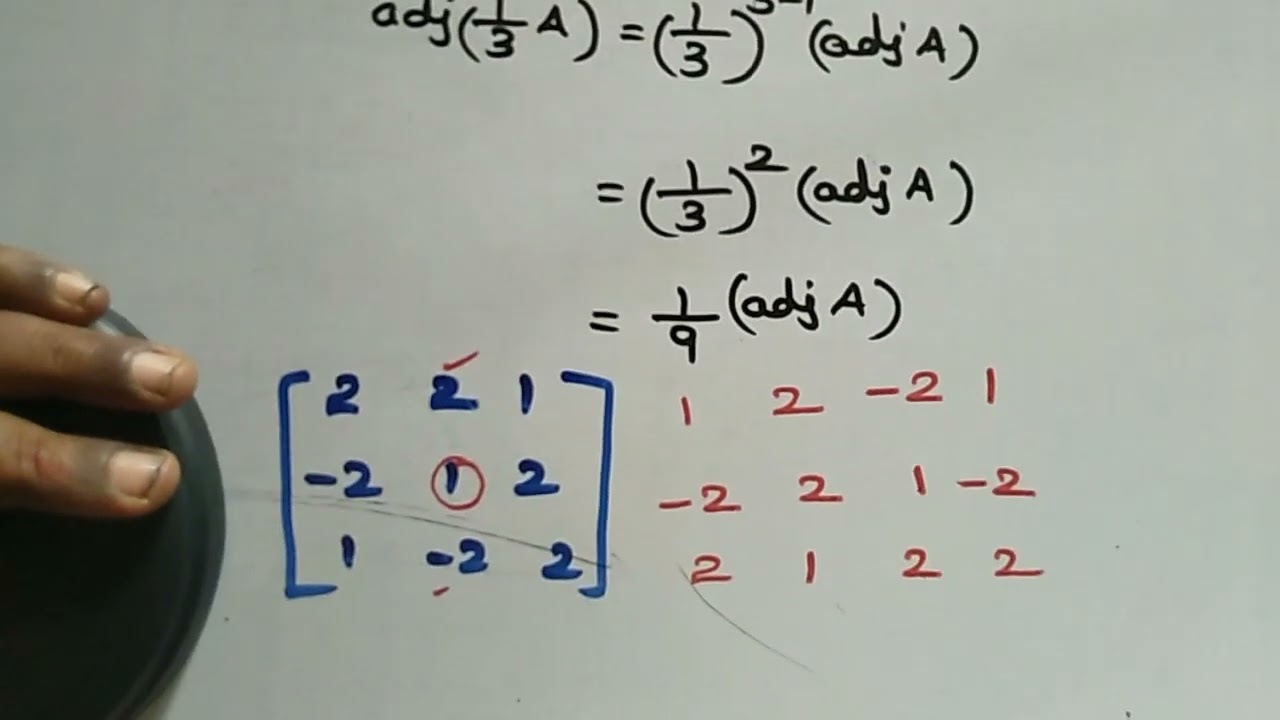 adj(1/3 A) = (1/3)^3-1 (adj A)
= (1/3)^2 (adj A)
= 1/9 (adj A)
[2 2 1] 1 2 -2 1
[-2 1 2] -2 2 1 -2
[1 -2 2] 2 1 2 2